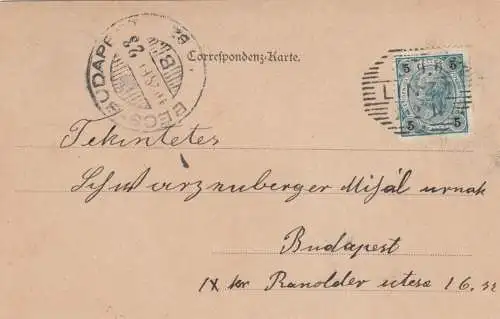 BÉCS-BUDAPEST
28
Correspondenz-Karte.
5 5
5 5
Tekintetes
Schwarzenberger Mihál urnak
Budapest
IX ker Ranolder utcza 16. sz